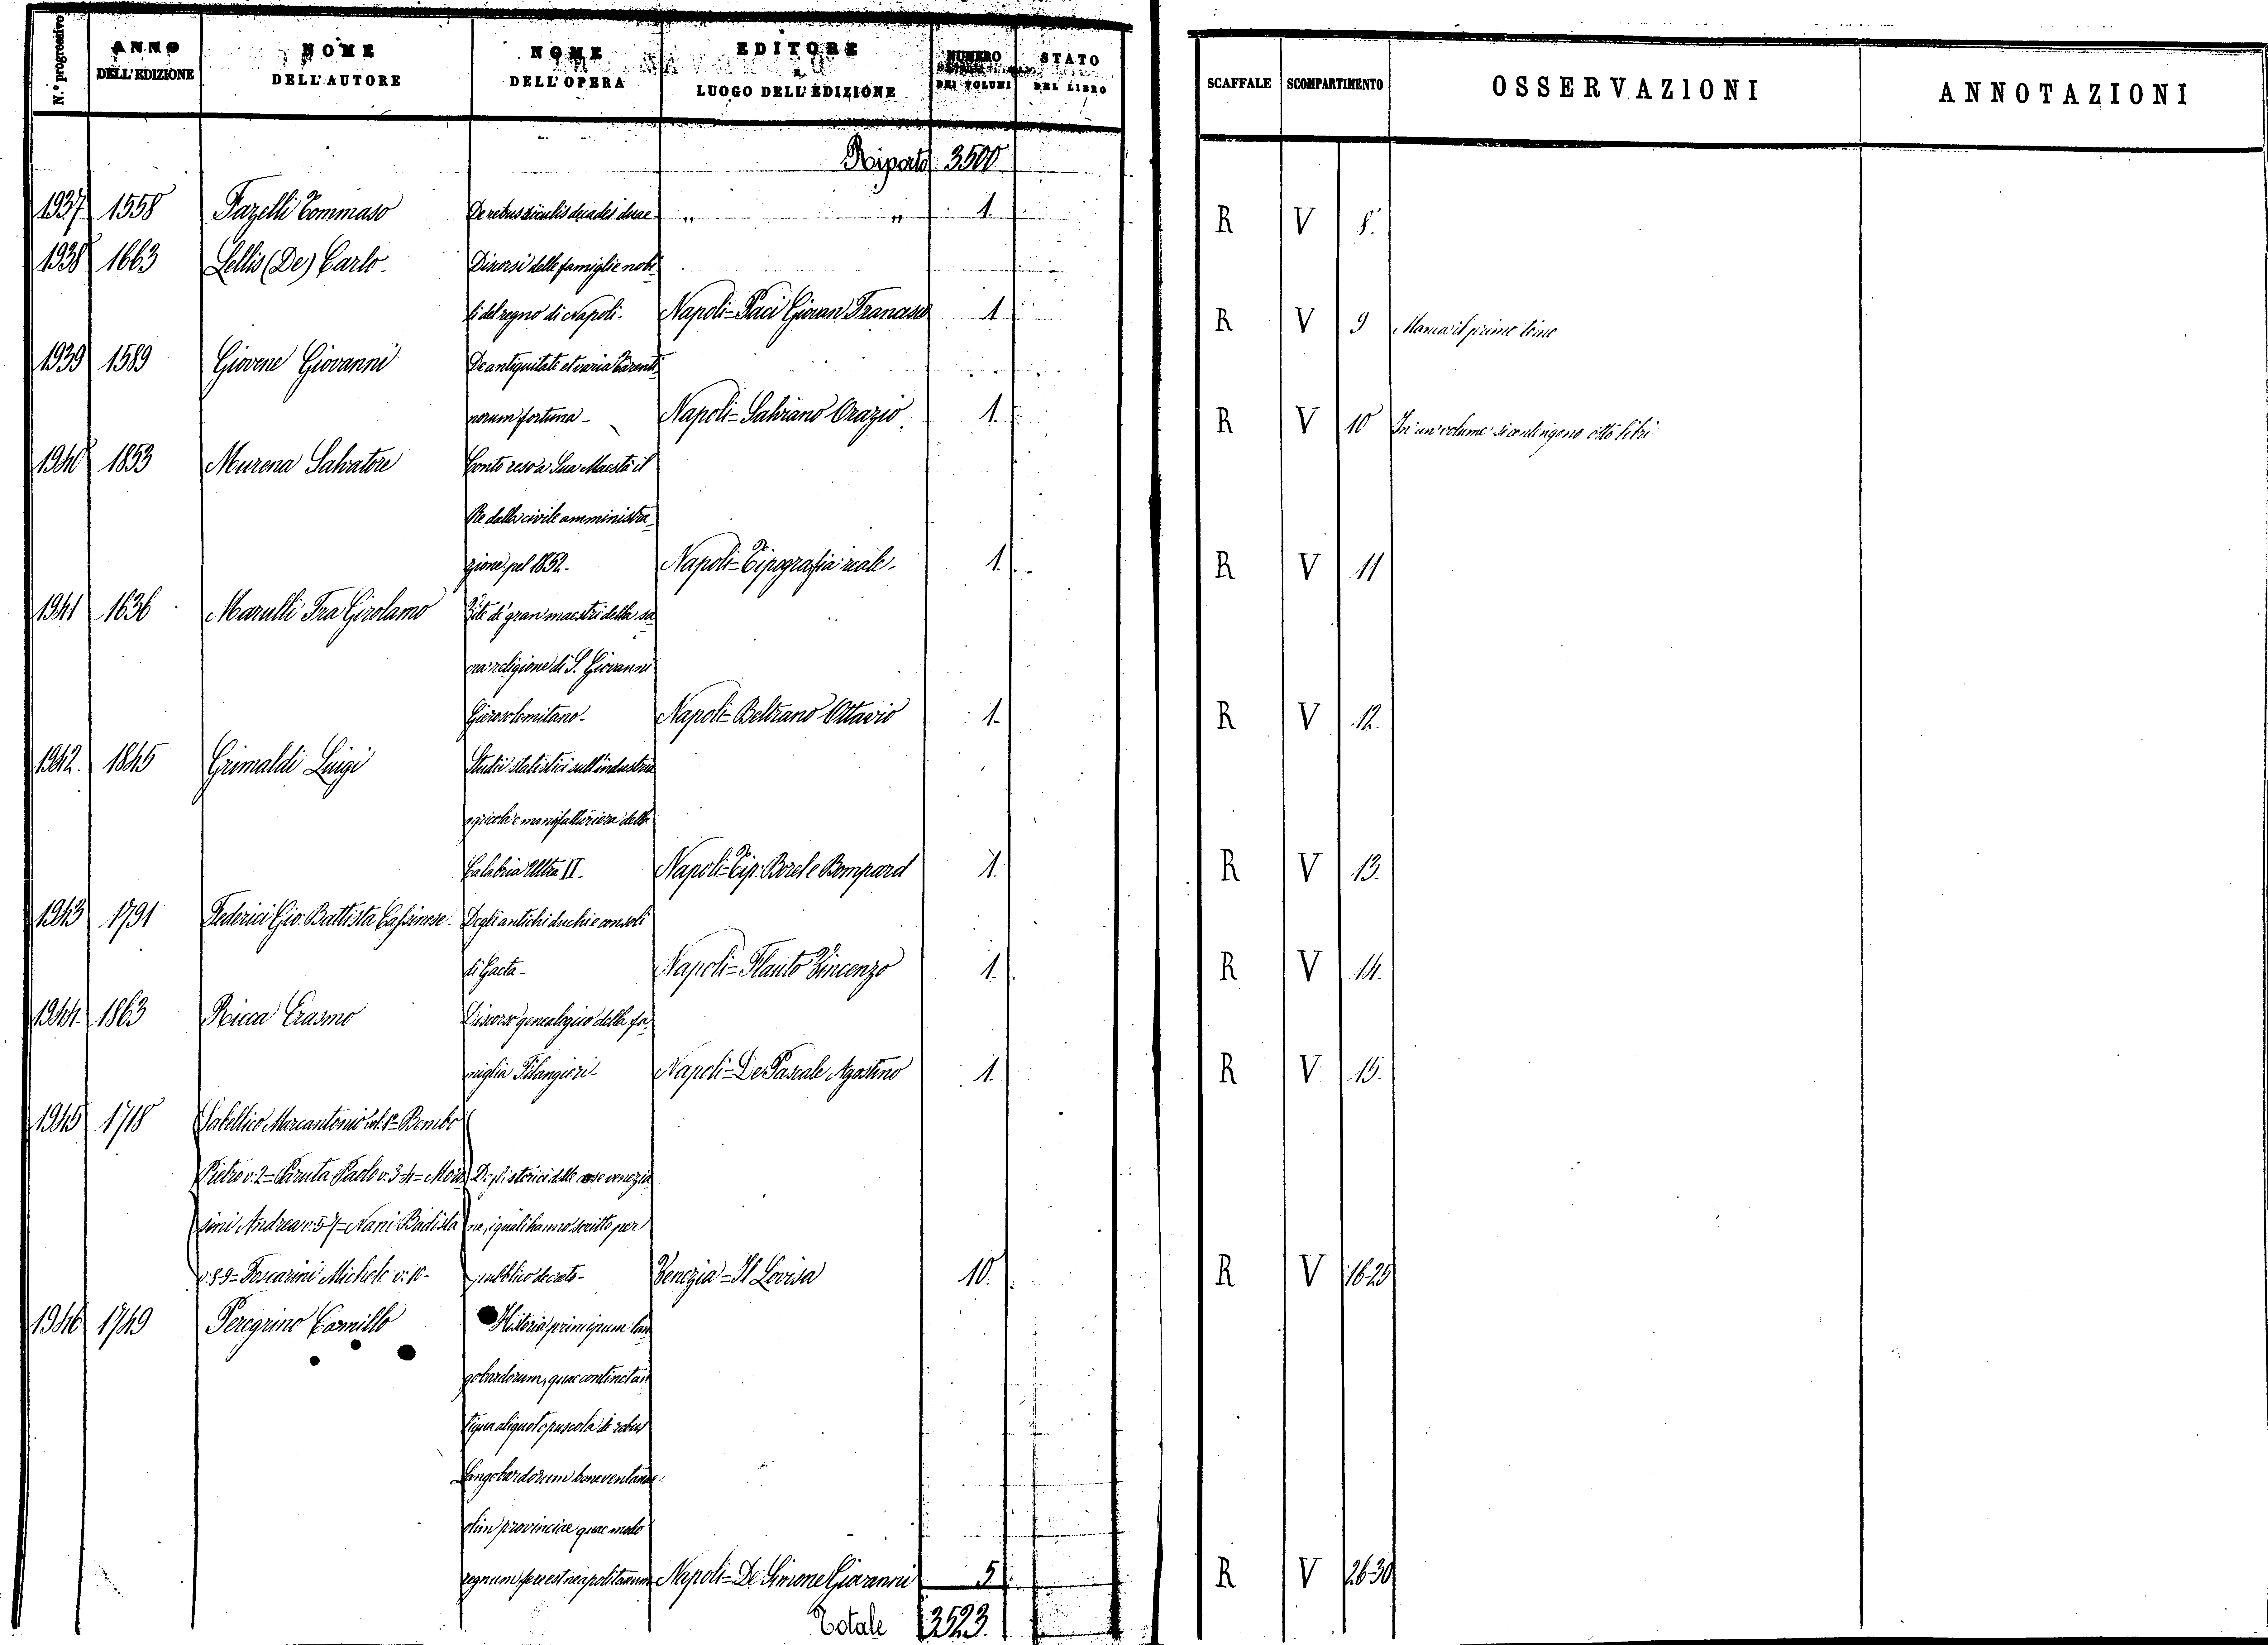 N.° progressivo ANNO DELL'EDIZIONE NOME DELL'AUTORE NOME DELL'OPERA EDITORE E LUOGO DELL'EDIZIONE NUMERO DEI VOLUMI STATO DEL LIBRO SCAFFALE SCOMPARTIMENTO OSSERVAZIONI ANNOTAZIONI
Riporto 3500
1937 1558 Fazelli Tommaso De rebus siculis decades duae " " 1. R V 8.
1938 1663 Lellis (De) Carlo. Discorsi delle famiglie nobi-
li del regno di Napoli. Napoli = Paci Giovan Francesco 1 R V 9 Manca il primo tomo
1939 1589 Giovene Giovanni De antiquitate et varia Tarenti-
norum fortuna - Napoli = Salviano Orazio 1. R V 10 In un volume si contengono otto libri
1940 1853 Murena Salvatore Conto reso a Sua Maestà il
Re dalla civile amministra-
zione pel 1852. Napoli = Tipografia reale. 1. R V 11
1941 1636 Marulli Fra Girolamo Vite de' gran maestri della sa-
cra religione di S. Giovanni
Gierosolomitano - Napoli = Beltrano Ottavio 1. R V 12.
1942. 1845 Grimaldi Luigi Studii statistici sull'industria
agricola e manifatturiera della
Calabria Ultra II. Napoli = Tip. Borel e Bompard 1. R V 13.
1943 1791 Federici Gio: Battista Cassinese. Degli antichi duchi e consoli
di Gaeta - Napoli = Flauto Vincenzo 1. R V 14.
1944. 1863 Ricca Erasmo Discorso genealogico della fa-
miglia Filangieri - Napoli = De Pascale Agostino 1. R V 15.
1945 1718 Sabellico Marcantonio vol. 1° = Bembo
Pietro v. 2 = Paruta Paolo v. 3-4 = Moro- Degl'istorici delle cose venezia-
sini Andrea v. 5-7 = Nani Battista ne, i quali hanno scritto per
v. 8-9 = Foscarini Michele v. 10 - pubblico decreto - Venezia = Il Lovisa 10. R V 16-25
1946 1749 Peregrino Camillo Historia principum lan-
gobardorum, quae continet an-
tiqua aliquot opuscola de rebus
Langobardorum beneventanae
olim provinciae quae modo
regnum fere est neapolitanum Napoli = De Simone Giovanni 5 R V 26-30
Totale 3523.